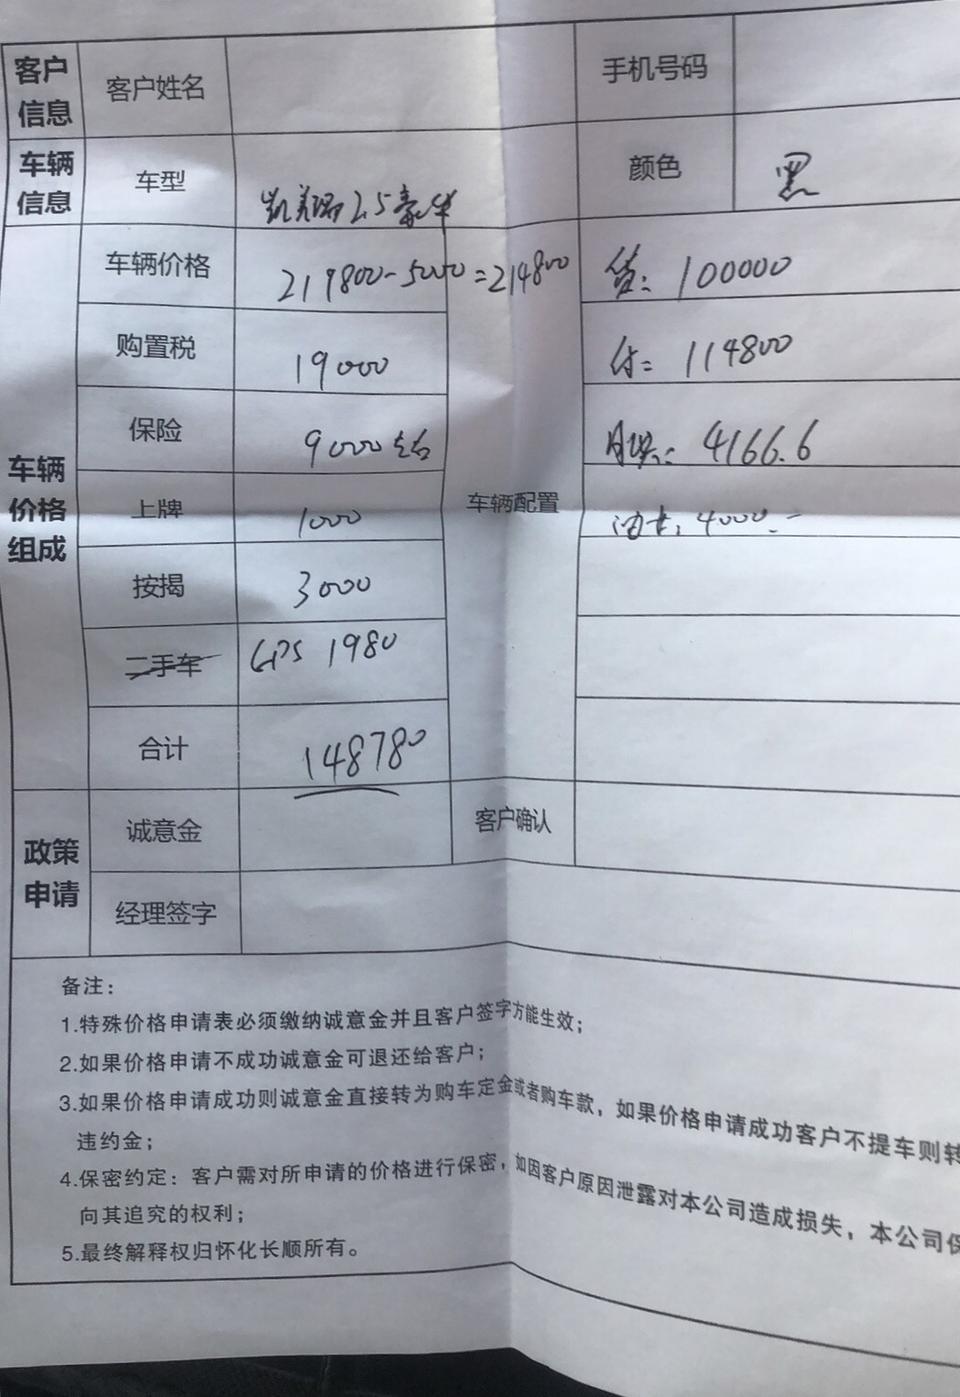 客户信息
客户姓名
手机号码
车辆信息
车型
凯美瑞 2.5 豪华
颜色
黑
车辆价格组成
车辆价格
219800-5000=214800
贷: 100000
购置税
19000
付: 114800
保险
9000 左右
月供: 4166.6
上牌
1000
车辆配置
油卡: 4000.-
按揭
3000
二手车
GPS 1980
合计
148780
政策申请
诚意金
客户确认
经理签字
备注：
1.特殊价格申请表必须缴纳诚意金并且客户签字方能生效；
2.如果价格申请不成功诚意金可退还给客户；
3.如果价格申请成功则诚意金直接转为购车定金或者购车款，如果价格申请成功客户不提车则转
违约金；
4.保密约定：客户需对所申请的价格进行保密，如因客户原因泄露对本公司造成损失，本公司保
向其追究的权利；
5.最终解释权归怀化长顺所有。